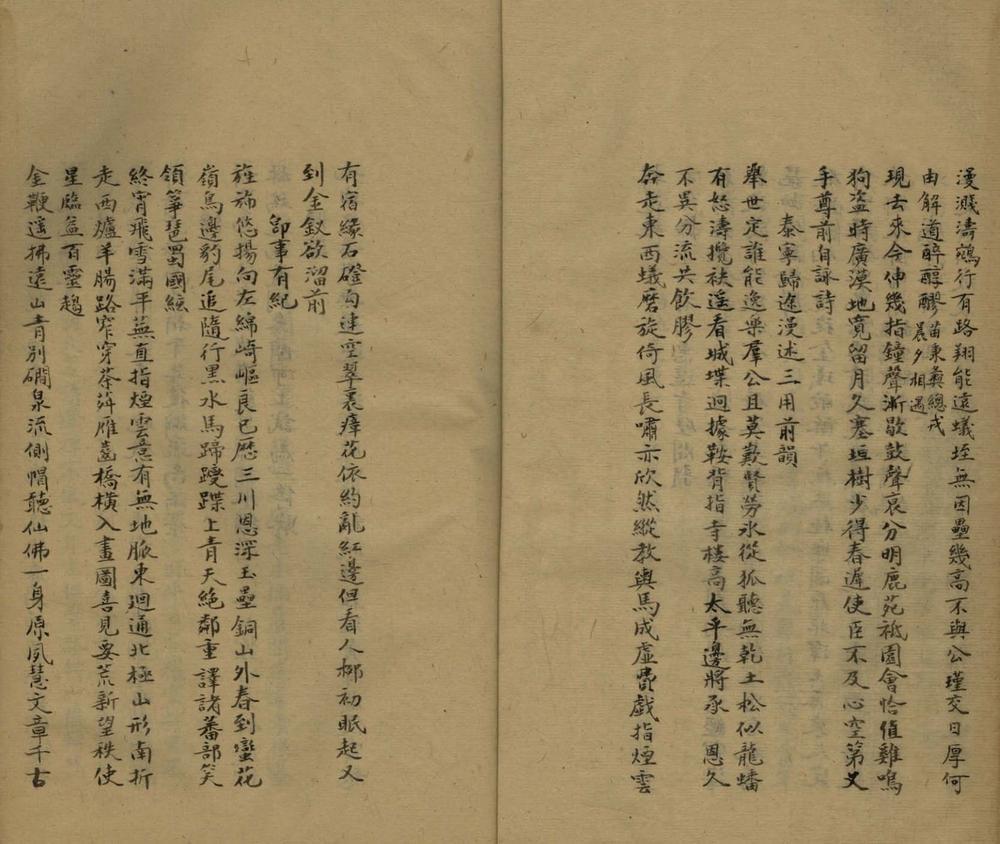 漫濺濤鵷行有路翔能遠蟻垤無因壘幾高不與公瑾交日厚何
由解道醉醇醪苗東彝總戎晨夕相遇
現去來今伸幾指鐘聲漸歇鼓聲哀分明鹿苑祇園會恰值雞鳴
狗盜時廣漠地寬留月久塞垣樹少得春遲使臣不及心空第又
手尊前自詠詩
泰寧歸途漫述三用前韻
舉世定誰能逸樂羣公且莫歎賢勞氷從狐聽無乾土松似龍蟠
有怒濤攬袂遥看城堞迥據鞍背指寺樓高太平邊將承恩久
不異分流共飲膠
奔走東西蟻磨旋倚風長嘯亦欣然縱教輿馬成虛費戲指煙雲
有宿緣石磴勾連空翠裹瘴花依約亂紅邊但看人柳初眠起又
到金釵欲溜前
即事有紀
旌斾悠揚向左綿崎嶇良已歷三川恩深玉壘銅山外春到蠻花
嶺鳥邊豹尾追隨行黒水馬蹄躞蹀上青天絶鄰重譯諸蕃部笑
領箏琶蜀國絃
終宵飛雪滿平蕪直指煙雲意有無地脈東廻通北極山形南折
走西爐羊腸路窄穿茶莽雁齒橋橫入畫圖喜見要荒新望秩使
星臨益百靈趨
金鞭遥拂遠山青別磵泉流側帽聽仙佛一身原夙慧文章千古